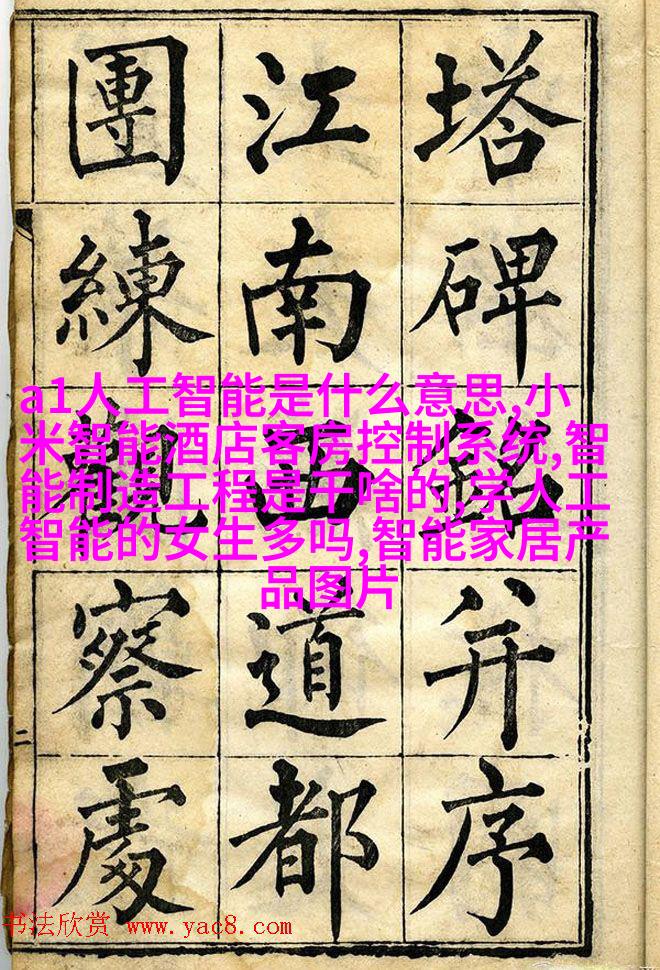 塔碑銘并序
江南西道都
團練觀察處
二
a1人工智能是什么意思,小
米智能酒店客房控制系统,智
能制造工程是干啥的,学人工
智能的女生多吗,智能家居产
品图片
书法欣赏 www.yac8.com